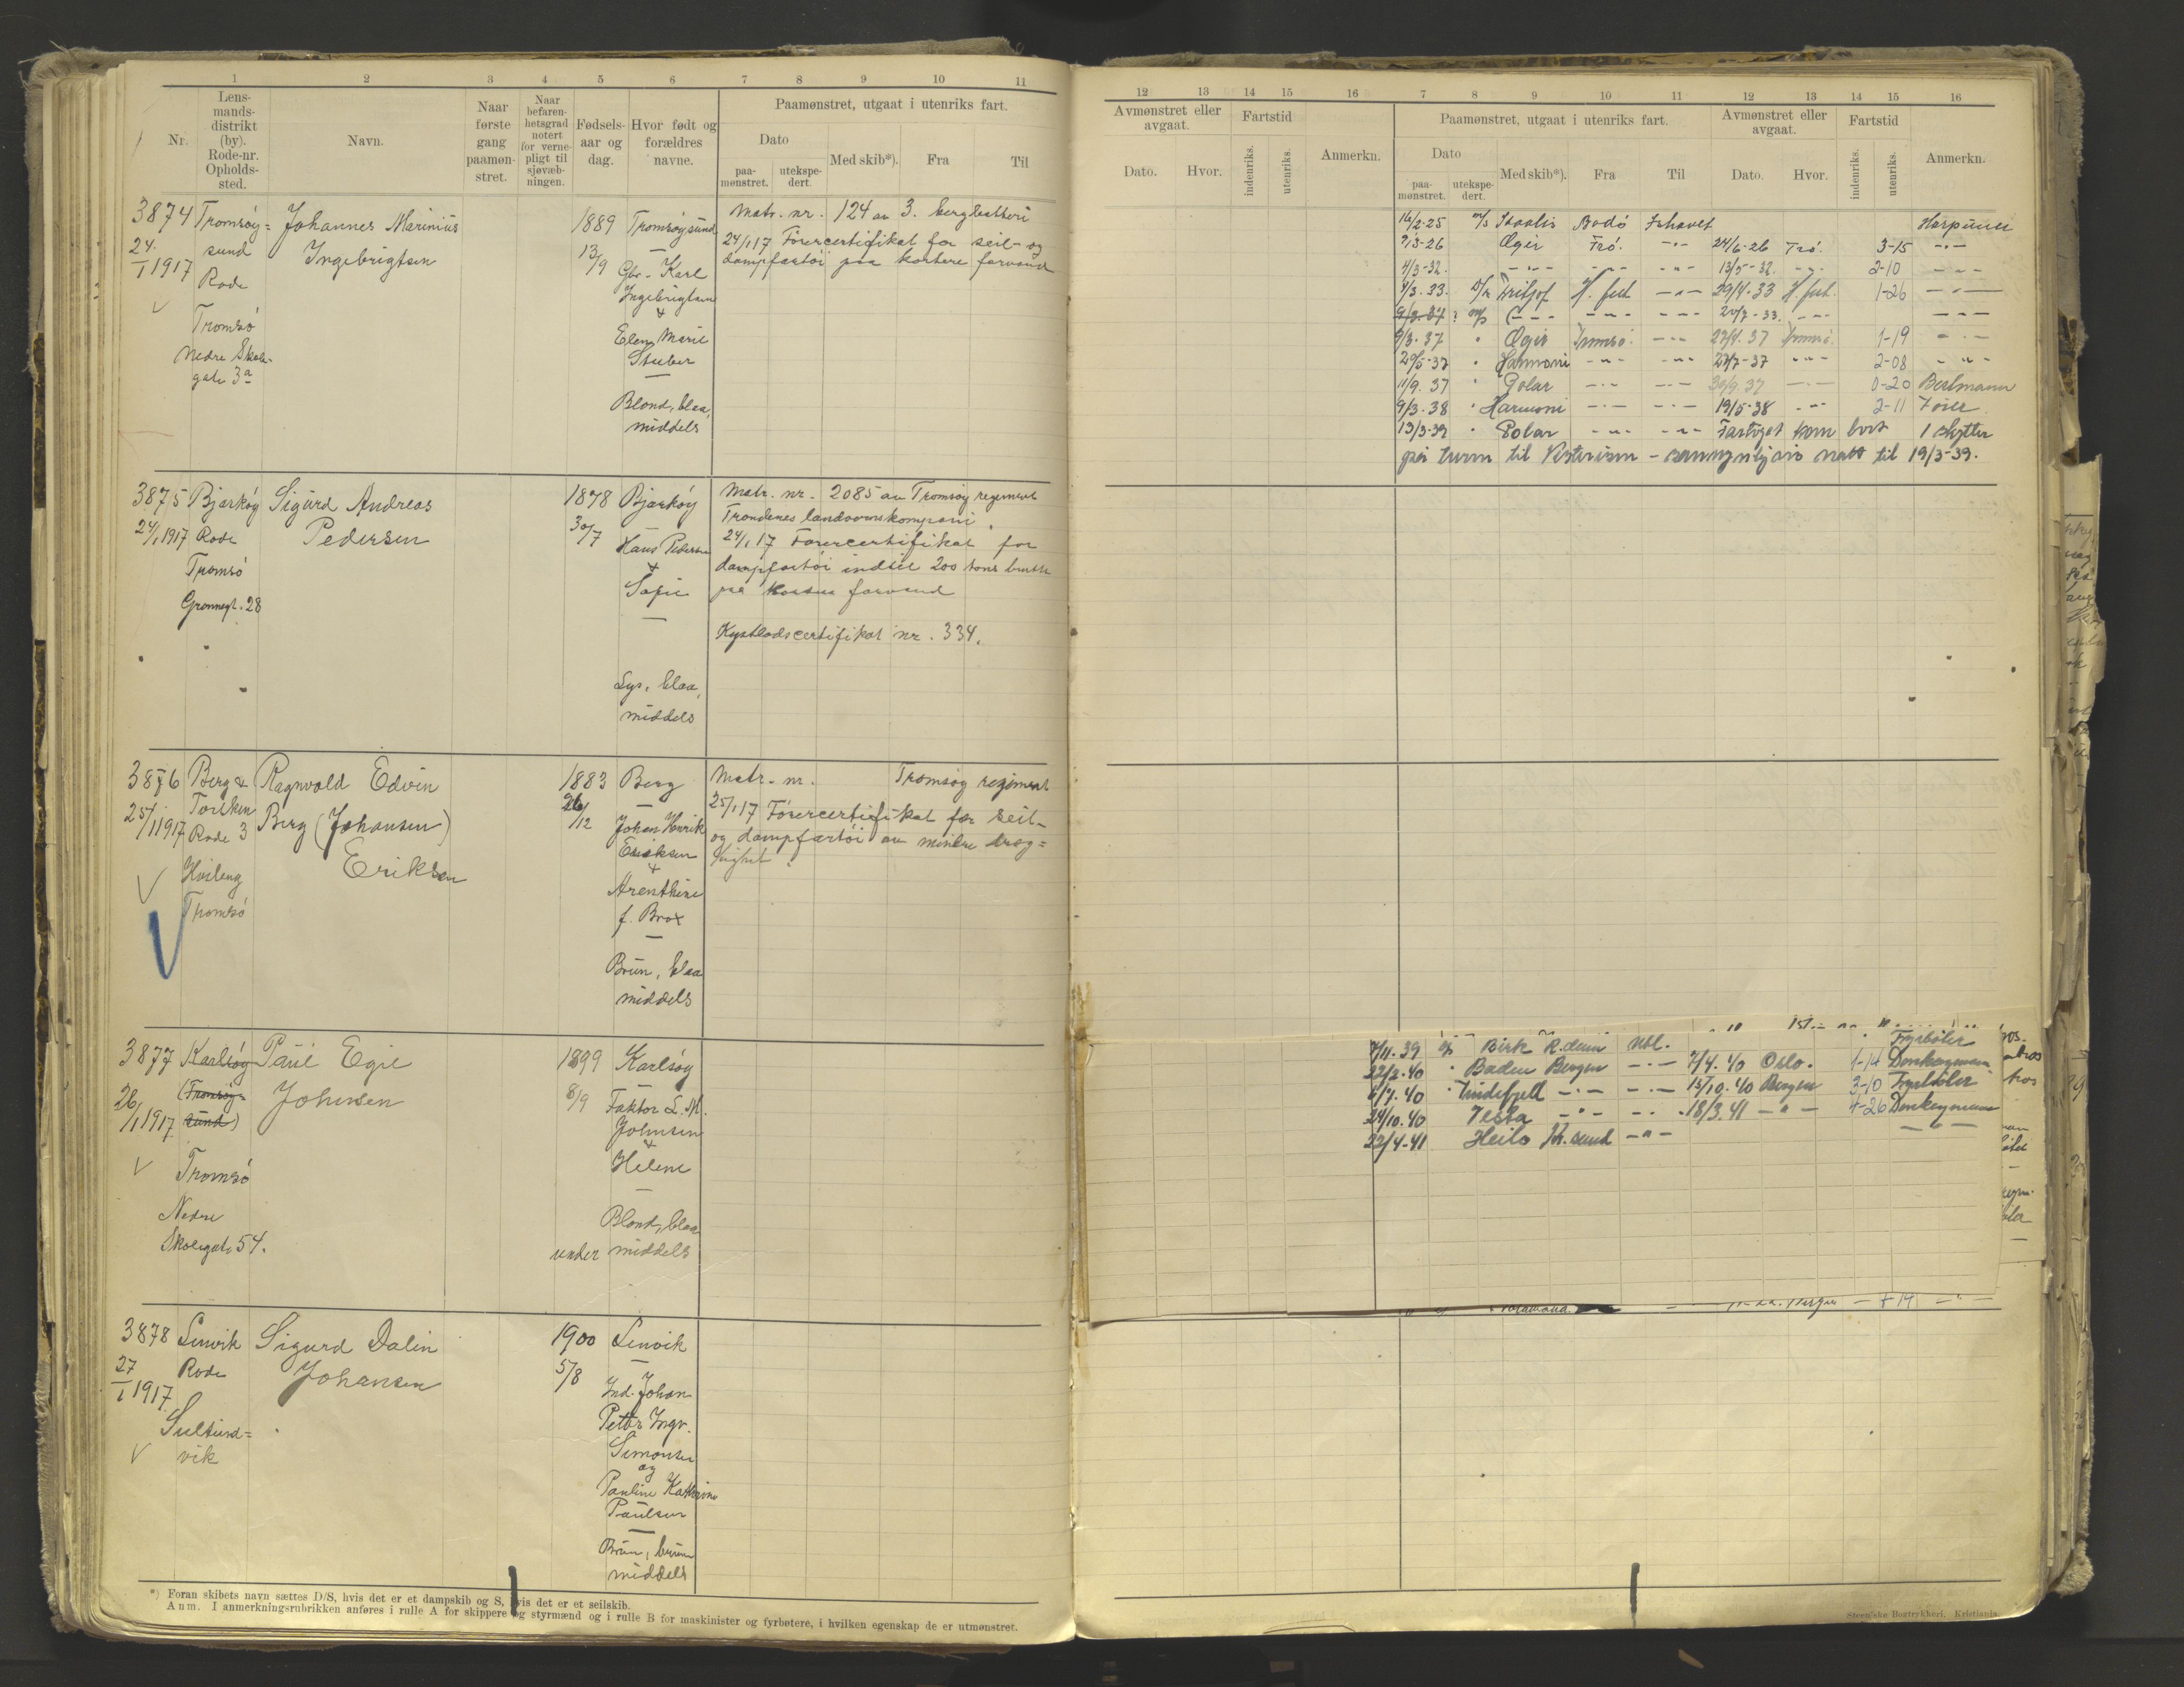 1 2 3 4 5 6 7 8 9 10 11
Nr.
Lens-
mands-
distrikt
(by).
Rode-nr.
Opholds-
sted.
Navn.
Naar
første
gang
paamøn-
stret.
Naar
befaren-
hetsgrad
notert
for verne-
pligt til
sjøvæb-
ningen.
Fødsels-
aar og
dag.
Hvor født og
forældres
navne.
Paamønstret, utgaat i utenriks fart.
Dato
paa-
mønstret.
utekspe-
dert.
Med skib*).
Fra
Til
3874 Tromsøy- Johannes Marinius 1889 Tromsøysund
24/1 1917 sund Ingebrigtsen 13/9
Rode
Tromsø
Nedre Skole-
gate 3a
Gbr. Karl
Ingebrigtsen
+
Elen Marie
Stuber
Blond, blaa,
middels
Matr. nr. 124 av 3. bergbatteri
24/1 17 Førercertifikat for seil- og
dampfartøi paa kortere farvand
3875 Bjarkøy Sigurd Andreas 1878 Bjarkøy
24/1 1917 Rode Pedersen 30/7
Tromsø
Grønnegt. 28
Hans Pedersen
+
Sofie
Lys, blaa,
middels
Matr. nr. 2085 av Tromsøy regiment
Trondenes landvernskompani.
24/1 17 Førercertifikat for
dampfartøi indtil 200 tons brutto
paa kortere farvand
Kystlodscertifikat nr. 334.
3876 Berg & Ragnvald Edvin 1883 Berg
25/1 1917 Torsken Berg (Johansen) 26/12
Rode 3 Eriksen
Tromsø
Johan Henrik
Eriksen
+
Arenthine
f. Brox
Brun, blaa
middels
Matr. nr. Tromsøy regiment
25/1 17 Førercertifikat for seil-
og dampfartøi av mindre dræg=
tighet
3877 Karlsøy Paul Egil 1899 Karlsøy
26/1 1917 (Tromsøy- Johnsen 8/9
sund)
Tromsø
Nedre
Skolegate 54.
Faktor L. M.
Johnsen
+
Helene
Blond, blaa
under middels
3878 Lenvik Sigurd Dalin 1900 Lenvik
27/1 1917 Rode Johansen 5/8
vik
Ind. Johan
Peter Ingv.
Simonsen
og
Pauline Kathrine
Paulsen
Brun, brune
middels
*) Foran skibets navn sættes D/S, hvis det er et dampskib og S, hvis det er et seilskib.
Anm. I anmerkningsrubrikken anføres i rulle A for skippere og styrmænd og i rulle B for maskinister og fyrbøtere, i hvilken egenskap de er utmønstret.
12 13 14 15 16 7 8 9 10 11 12 13 14 15 16
Avmønstret eller
avgaat.
Dato.
Hvor.
Fartstid
indenriks.
utenriks.
Anmerkn.
Paamønstret, utgaat i utenriks fart.
Dato
paa-
mønstret.
utekspe-
dert.
Med skib*).
Fra
Til
Avmønstret eller
avgaat.
Dato.
Hvor.
Fartstid
indenriks.
utenriks.
Anmerkn.
16/2-25 m/s Bodø Ishavet Harpuner
9/3-26 Ægir Trø. -"- 24/6-26 Trø. 3-15 -"-
4/3-32. -"- -"- -"- 13/5-32. -"- 2-10 -"-
4/3.33. D/s Fritjof H.fest -"- 29/4-33 H.fest. 1-26 -"-
-"- -"- -"- 20/7-33. -"- -"-
9/3.37 " Ægir Tromsø. -"- 27/4.37 Tromsø. 1-19 -"-
20/5-37 " Harmoni -"- -"- 27/7-37 -"- 2-08 -"-
11/9.37 " Polar -"- -"- 30/9.37 -"- 0-20 Bestmann
9/3.38 " Harmoni -"- -"- 19/5-38 -"- 2-11 Fører
13/3-39 " Polar -"- -"- Fartøyet kom bort 1 skytter
på turen til Vesterisen - sannsynligvis natt til 19/3-39.
7/11.39 Birk K.sund Nbl. Fyrbøter
22/2.40 " Baden Bergen -"- 7/4.40 Oslo. 1-14 Donkeymann
6/7.40 " Lindefjell -"- -"- 15/10.40 Bergen 3-10 Fyrbøter
24/10.40 Vesta -"- -"- 18/3.41 -"- 4-26 Donkeymann
22/4-41 Heilo Kr.sund -"- -"-
Steen'ske Bogtrykkeri, Kristiania.